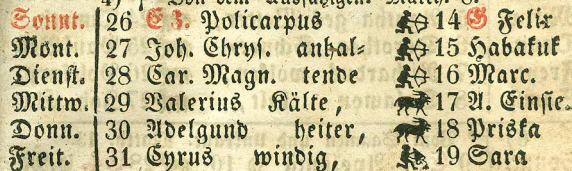 Sonnt. 26 E 3. Policarpus 14 G Felix
Mont. 27 Joh. Chrys. anhal= 15 Habakuk
Dienst. 28 Car. Magn. tende 16 Marc.
Mittw. 29 Valerius Kälte, 17 A. Einsie.
Donn. 30 Adelgund heiter, 18 Priska
Freit. 31 Cyrus windig, 19 Sara